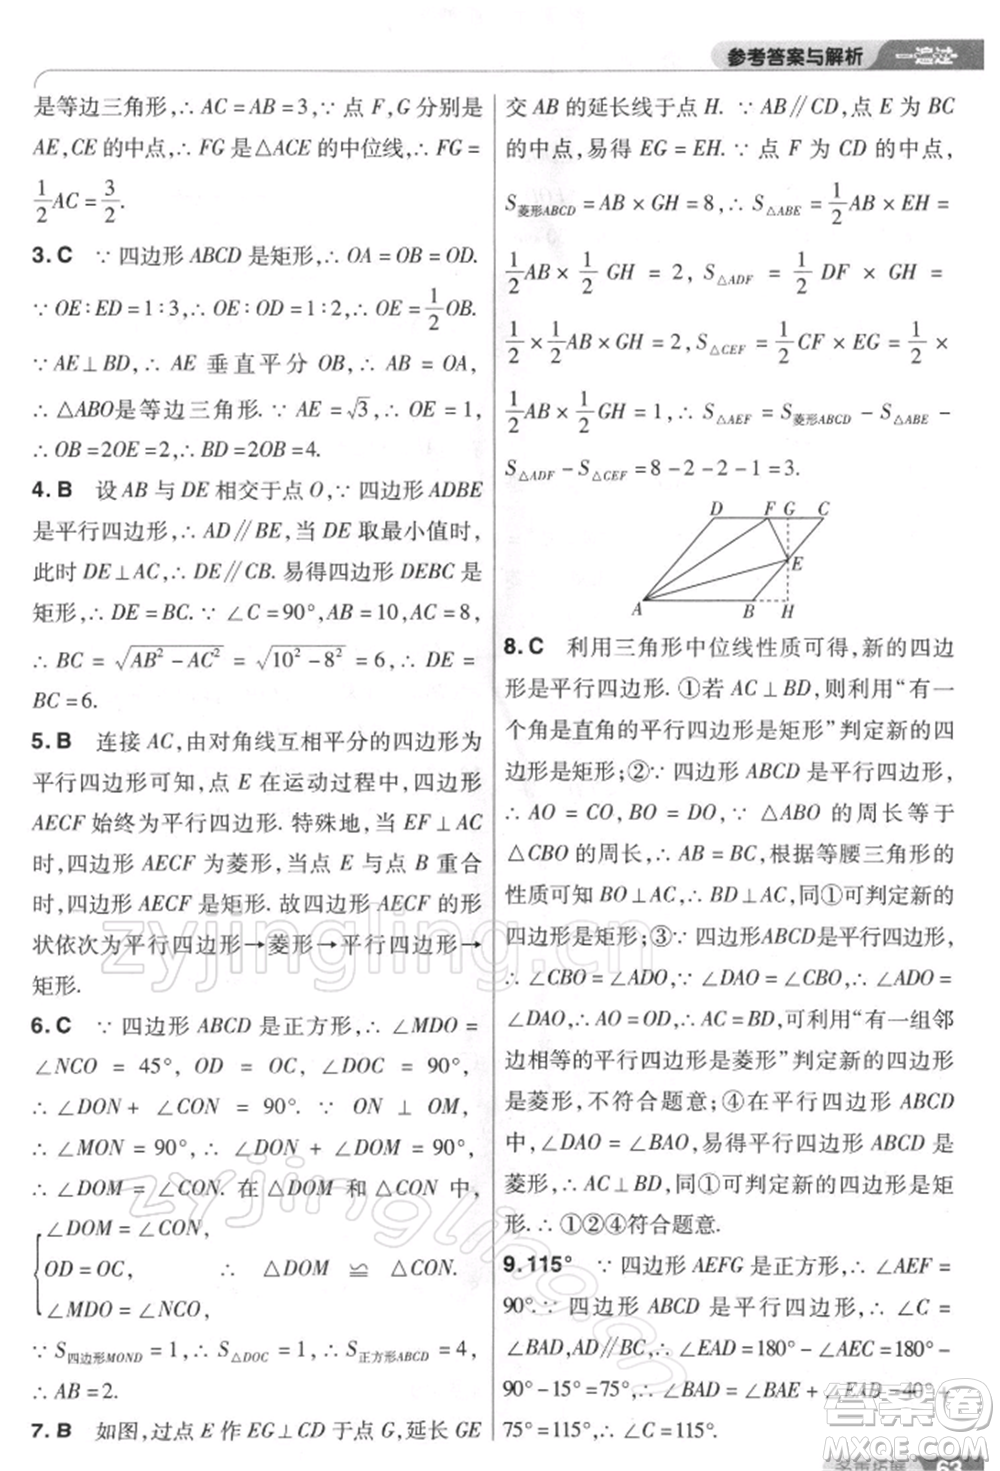 参考答案与解析 一遍过
是等边三角形,∴ AC = AB = 3,∵ 点 F,G 分别是
AE,CE 的中点,∴ FG 是△ACE 的中位线,∴ FG =
1/2 AC = 3/2.
3. C ∵ 四边形 ABCD 是矩形,∴ OA = OB = OD.
∵ OE∶ED = 1∶3,∴ OE∶OD = 1∶2,∴ OE = 1/2 OB.
∵ AE⊥BD,∴ AE 垂直平分 OB,∴ AB = OA,
∴ △ABO是等边三角形. ∵ AE = √3,∴ OE = 1,
∴ OB = 2OE = 2,∴ BD = 2OB = 4.
4. B 设 AB 与 DE 相交于点 O,∵ 四边形 ADBE
是平行四边形,∴ AD∥BE,当 DE 取最小值时,
此时 DE⊥AC,∴ DE∥CB. 易得四边形 DEBC 是
矩形,∴ DE = BC. ∵ ∠C = 90°,AB = 10,AC = 8,
∴ BC = √(AB² − AC²) = √(10² − 8²) = 6,∴ DE =
BC = 6.
5. B 连接 AC,由对角线互相平分的四边形为
平行四边形可知,点 E 在运动过程中,四边形
AECF 始终为平行四边形. 特殊地,当 EF⊥AC
时,四边形 AECF 为菱形,当点 E 与点 B 重合
时,四边形 AECF 是矩形. 故四边形 AECF 的形
状依次为平行四边形→菱形→平行四边形→
矩形.
6. C ∵ 四边形 ABCD 是正方形,∴ ∠MDO =
∠NCO = 45°, OD = OC, ∠DOC = 90°,
∴ ∠DON + ∠CON = 90°. ∵ ON ⊥ OM,
∴ ∠MON = 90°,∴ ∠DON + ∠DOM = 90°,
∴ ∠DOM = ∠CON. 在 △DOM 和 △CON 中,
∠DOM = ∠CON,
OD = OC, ∴ △DOM ≌ △CON.
∠MDO = ∠NCO,
∵ S四边形MOND = 1,∴ S△DOC = 1,∴ S正方形ABCD = 4,
∴ AB = 2.
7. B 如图,过点 E 作 EG⊥CD 于点 G,延长 GE
交 AB 的延长线于点 H. ∵ AB∥CD,点 E 为 BC
的中点,易得 EG = EH. ∵ 点 F 为 CD 的中点,
S菱形ABCD = AB × GH = 8,∴ S△ABE = 1/2 AB × EH =
1/2 AB × 1/2 GH = 2, S△ADF = 1/2 DF × GH =
1/2 × 1/2 AB × GH = 2,S△CEF = 1/2 CF × EG = 1/2 ×
1/2 AB × 1/2 × 1/2 GH = 1,∴ S△AEF = S菱形ABCD − S△ABE −
S△ADF − S△CEF = 8 − 2 − 2 − 1 = 3.
D F G C
E
A B H
8. C 利用三角形中位线性质可得,新的四边
形是平行四边形. ①若 AC⊥BD,则利用“有一
个角是直角的平行四边形是矩形”判定新的四
边形是矩形;②∵ 四边形 ABCD 是平行四边形,
∴ AO = CO,BO = DO,∵ △ABO 的周长等于
△CBO 的周长,∴ AB = BC,根据等腰三角形的
性质可知 BO⊥AC,∴ BD⊥AC,同①可判定新的
四边形是矩形;③∵ 四边形ABCD是平行四边形,
∴ ∠CBO = ∠ADO,∵ ∠DAO = ∠CBO,∴ ∠ADO =
∠DAO,∴ AO = OD,∴ AC = BD,∴ 利用“有一组邻
边相等的平行四边形是菱形”判定新的四边形
是菱形,不符合题意;④在平行四边形 ABCD
中,∵ ∠DAO = ∠BAO,易得平行四边形 ABCD 是
菱形,∴ AC⊥BD,同①可判定新的四边形是矩
形. ∴ ①②④符合题意.
9. 115° ∵ 四边形 AEFG 是正方形,∴ ∠AEF =
90°. ∵ 四边形 ABCD 是平行四边形,∴ ∠C =
∠BAD,AD∥BC,∴ ∠EAD = ∠AEB = 180° −
90° − 15° = 75°,∴ ∠BAD = ∠BAE + ∠EAD = 40° +
75° = 115°,∴ ∠C = 115°.
63
zyjingling.cn
zyjingling.cn
答案圈
MXQE.COM